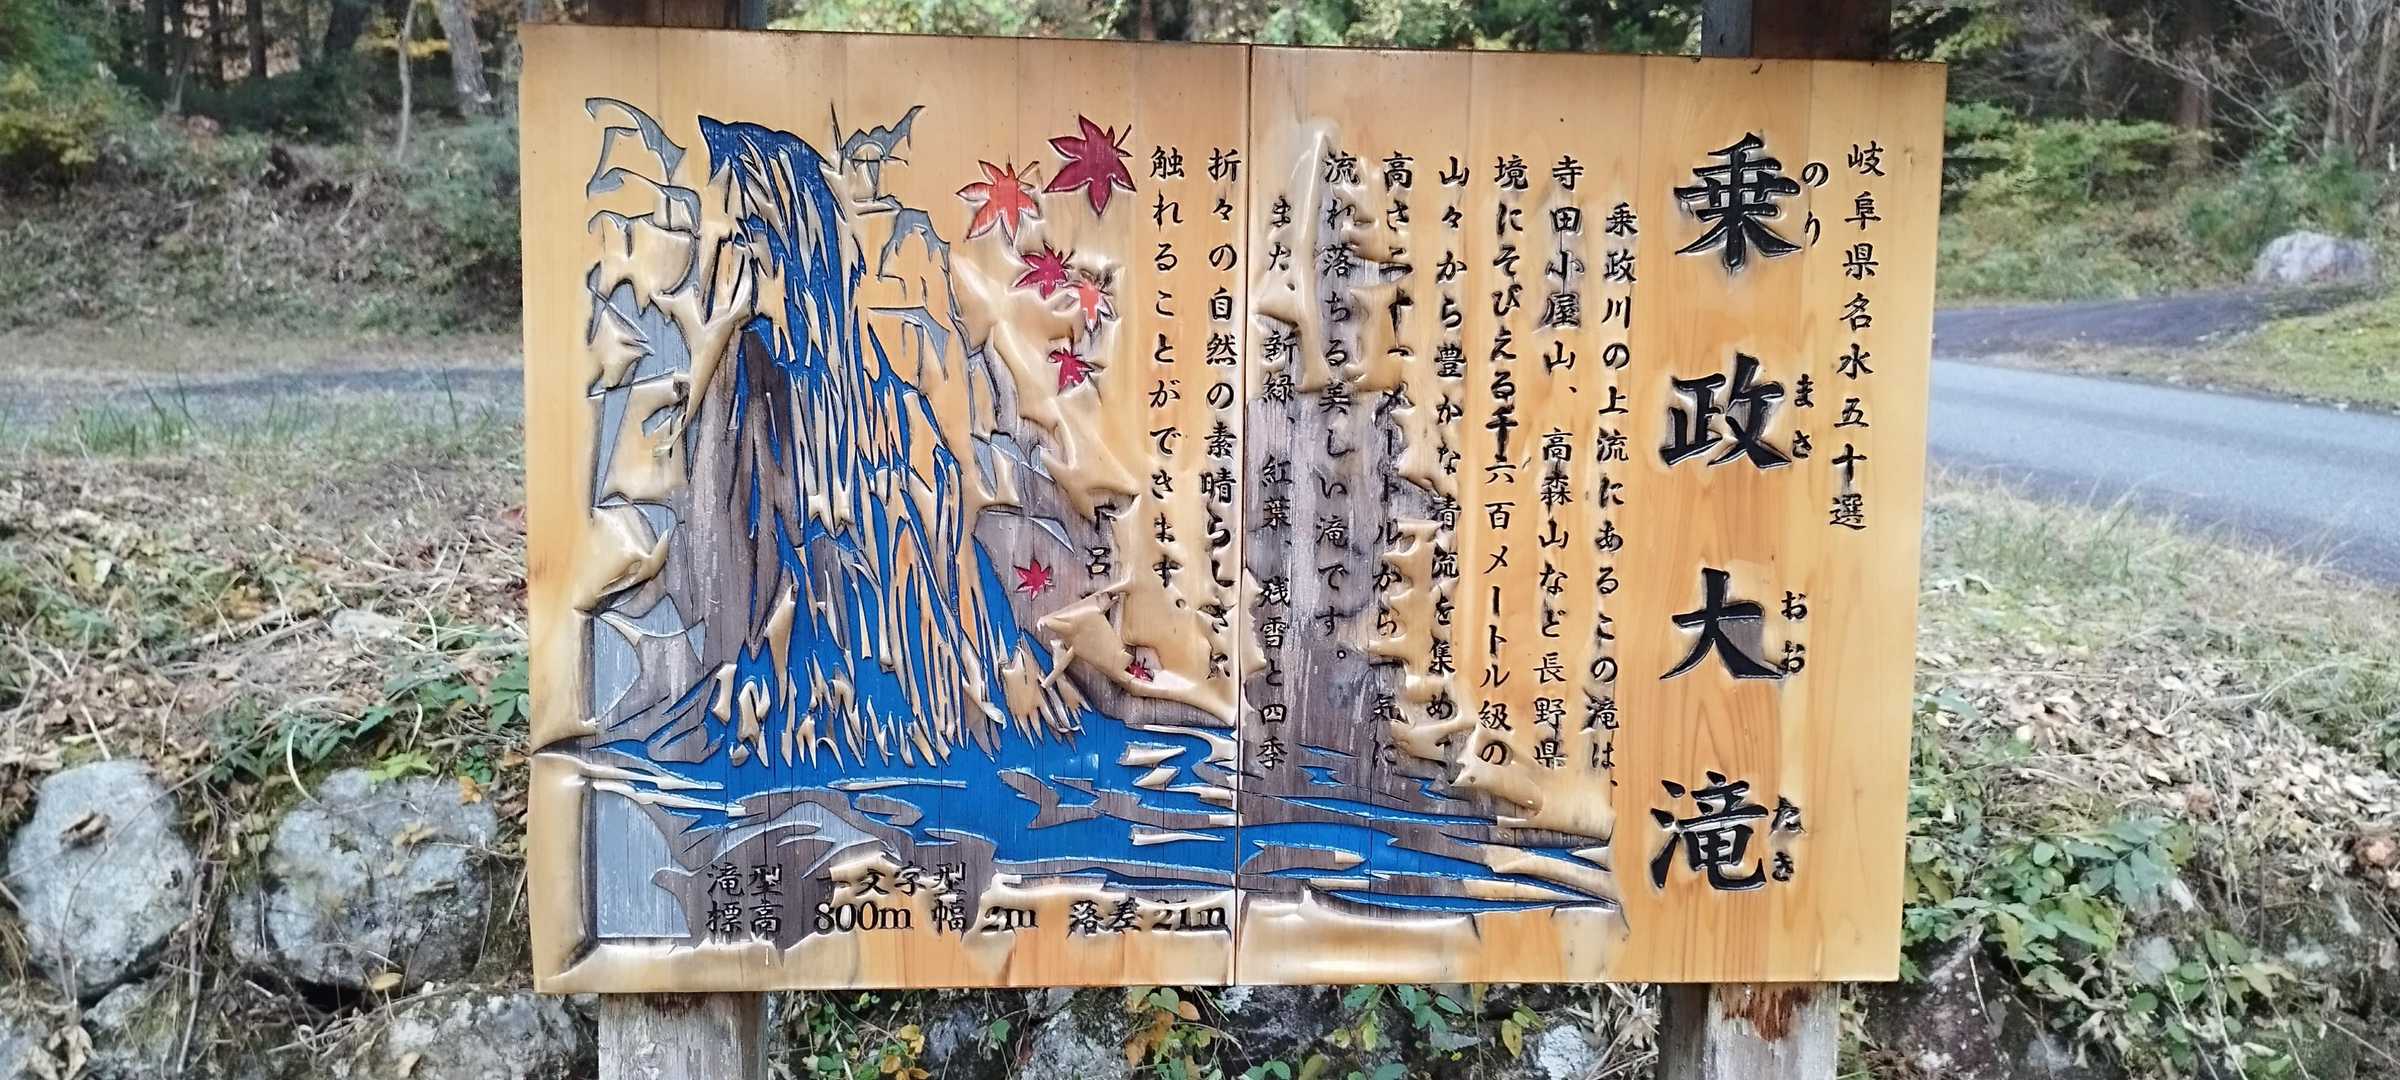 岐阜県名水五十選
乗政大滝
のりまさおおたき
乗政川の上流にあるこの滝は、
寺田小屋山、高森山など長野県
境にそびえる千六百メートル級の
山々から豊かな清流を集めて
高さ二十一メートルから一気に
流れ落ちる美しい滝です。
また、新緑、紅葉、残雪と四季
折々の自然の素晴らしさに
触れることができます。
下呂
滝型 一文字型
標高 800m 幅 2m 落差 21m